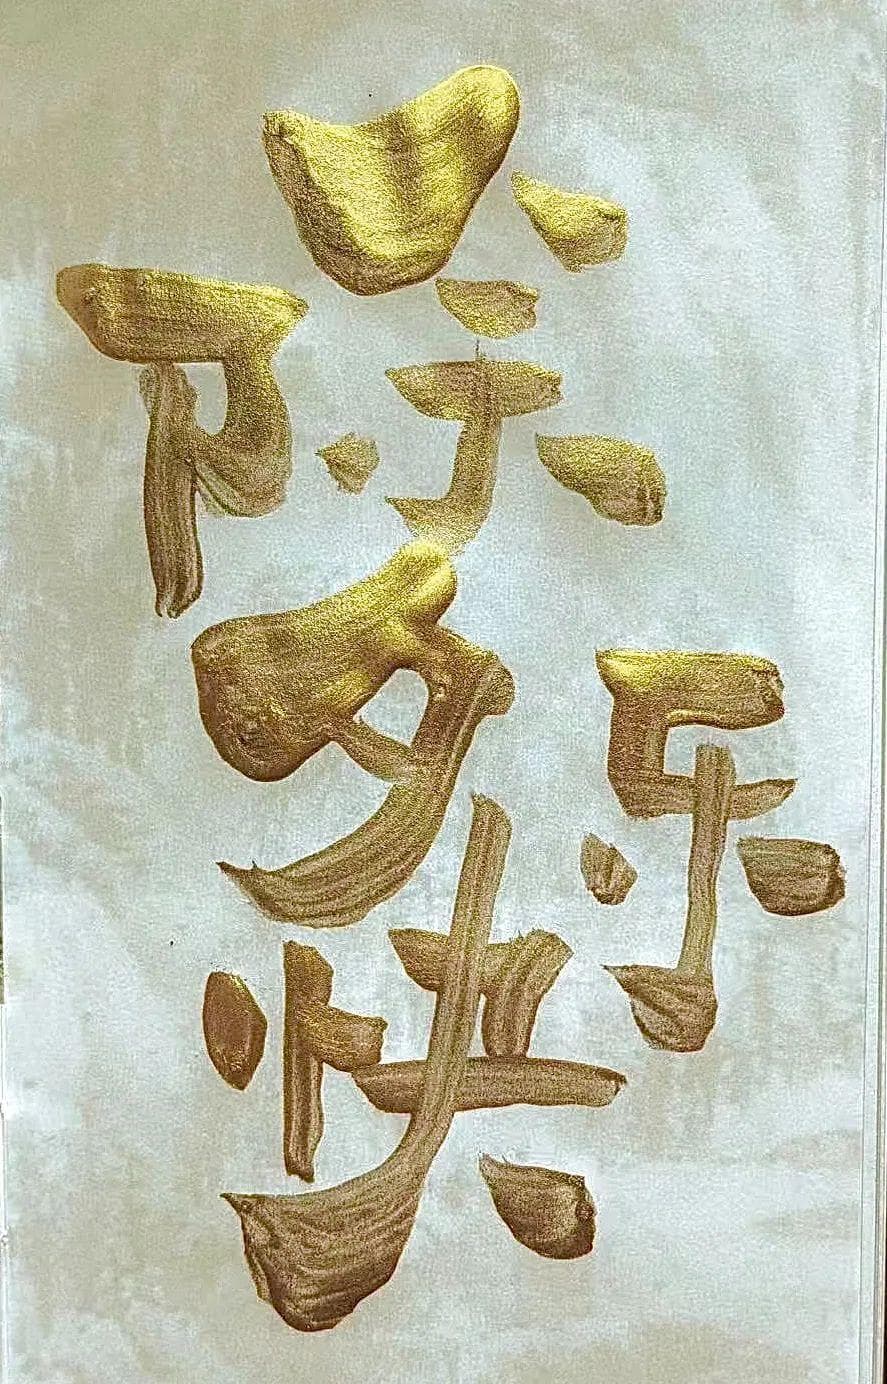 除夕快乐